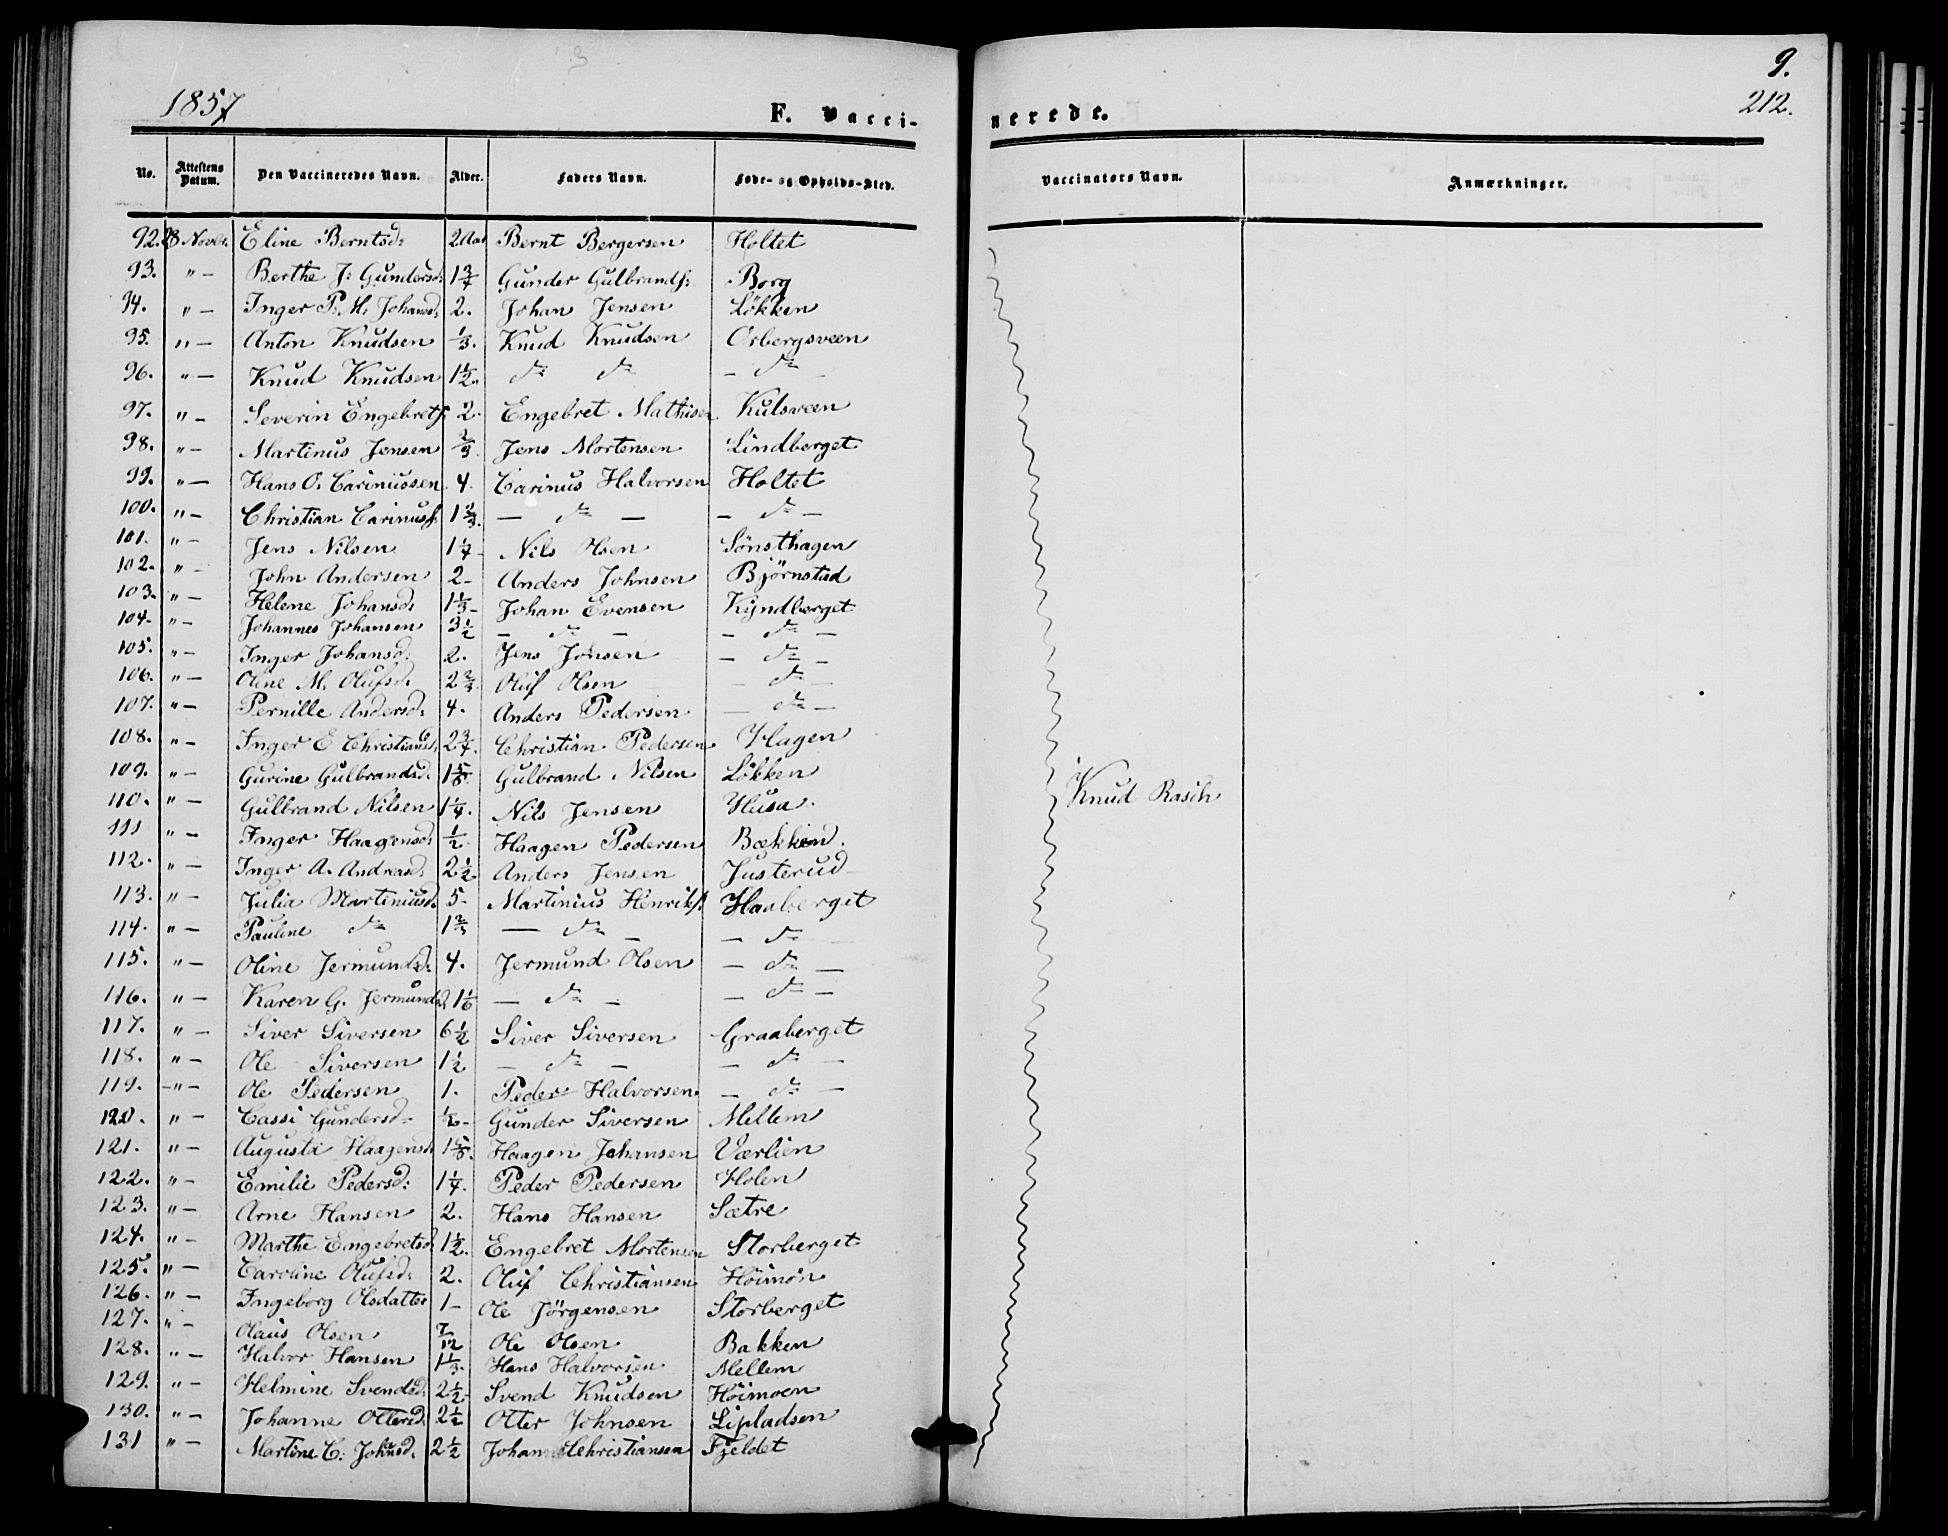 1857 F. Vacci-
No. Attestens Datum. Den Vaccineredes Navn. Alder. Faders Navn. Føde- og Opholds-Sted.
92. 28 Novbr. Eline Berntsd: 2 Aar Bernt Bergersen Holtet
93. " - Berthe J: Gundersd: 1 3/4 Gunder Gulbrands: Borg
94. " - Inger P. M. Johansd: 2. Johan Jensen Lökken
95. " - Anton Knudsen 1/3. Knud Knudsen Orbergsveen
96. " - Knud Knudsen 1 1/2. do do - do -
97. " - Severin Engebrets: 2. Engebret Mathisen Kulsveen
98. " - Martinus Jensen 2/3. Jens Mortensen Lindberget
99. " - Hans O. Carinussen 4. Carinus Halvorsen Holtet
100. " - Christian Carinuss: 1 2/3. - do - - do -
101. " - Jens Nilsen 1 1/4 - Nils Olsen Sönsthagen
102. " - John Andersen 2 - Anders Johnsen Björnstad
103. " - Helene Johansd: 1 1/3 - Johan Evensen Kyndberget
104. " - Johannes Johansen 3 1/2 - do - - do -
105. " - Inger Johansd. 2. Jens Jonsen - do -
106. " - Oline M. Olufsd. 2 2/3. Oluf Olsen - do -
107. " - Pernille Andersd: 4. Anders Pedersen - do -
108. " - Inger E Christiansd: 2 3/4. Christian Pedersen Hagen
109. " - Gurine Gulbrandsd. 1 5/6. Gulbrand Nilsen Lökken
110. " - Gulbrand Nilsen 1 1/4. Nils Jensen Husa.
111 " - Inger Haagensd: 1/2. Haagen Pedersen Bækken.
112. " - Inger A. Andreasd: 2 1/2. Anders Jensen Justerud
113. " - Julia Martiniusd. 5 - Martinius Henriks: Haaberget
114. " - Pauline do 1 2/3 - do - - do -
115. " - Oline Jermundsd: 4. Jermund Olsen - do -
116. " - Karen G. Jermundsd 1 1/6 - do - - do -
117. " - Siver Siversen 6 1/2 Siver Siversen Graaberget
118. " - Ole Siversen 1 1/2 - do - - do -
119. - " - Ole Pedersen 1. Peder Halvorsen - do -
120. " - Cassi Gundersd - 1/2 - Gunder Siversen Mellem
121. " - Augusta Haagensd 1 5/6. Haagen Johansen Værlien
122. " - Emilie Pedersd: 1 1/4. Peder Pedersen Holen
123. " - Arne Hansen 2. Hans Hansen Sætre
124. " - Marthe Engebretsd 1 1/2. Engebret Mortensen Storberget
125. " - Caroline Olufsd: 2. Oluf Christiansen Höimon
126. " - Ingeborg Olsdatter 1 - Ole Jörgensen Storberget
127. " - Olaus Olsen 7/12 Ole Olsen Bakken
128. " - Halvor Hansen 1 1/3. Hans Halvorsen Mellem
129. " - Helmine Svendsd: 2 1/2 - Svend Knudsen Höimoen
130. " - Johanne Ottersd. 2 1/2 Otter Johnsen Lipladsen
131 " - Martine C: Johnsd. 2 1/2 Johan Christiansen Fjeldet
9.
212.
nerede.
Vaccinators Navn. Anmærkninger.
Knud Rasch